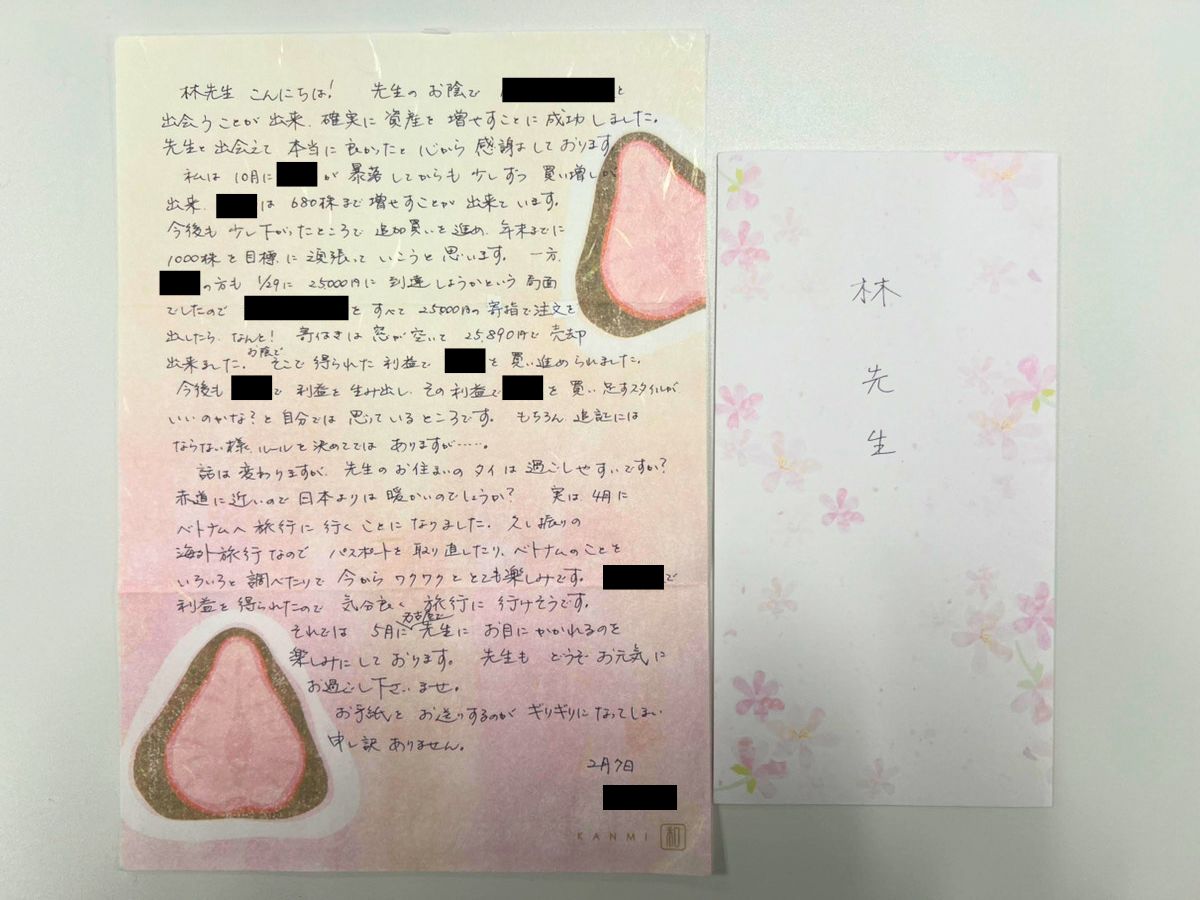 林先生 こんにちは! 先生のお陰で と
出会うことが出来、確実に資産を増せすことに成功しました。
先生と出会えて本当に良かったと心から感謝しております
私は10月に が暴落してからも少しずつ買い増しが
出来、 は680株まで増せすことが出来ています。
今後も少し下がったところで追加買いを進め、年末までに
1000株を目標に頑張っていこうと思います。一方、
の方も 1/29に25000円に到達しようかという局面
でしたので をすべて25000円の寄指で注文を
出したら、なんと! 寄付きは窓が空いて25,890円で売却
出来ました。お陰で そこで得られた利益で を買い進められました。
今後も で利益を生み出し、その利益で を買い足すスタイルが
いいのかな?と自分では思っているところです。もちろん追証には
ならない様、ルールを決めてではありますが……。
話は変わりますが、先生のお住まいのタイは過ごしやすいですか?
赤道に近いので日本よりは暖かいのでしょうか? 実は4月に
ベトナムへ旅行に行くことになりました。久し振りの
海外旅行なので パスポートを取り直したり、ベトナムのことを
いろいろと調べたりで今からワクワクととても楽しみです。 で
利益を得られたので気分良く旅行に行けそうです。
それでは5月に名古屋で先生にお目にかかれるのを
楽しみにしております。先生もどうぞお元気に
お過ごし下さいませ。
お手紙をお送りするのがギリギリになってしまい
申し訳ありません。
2月7日
KANMI 和
林先生